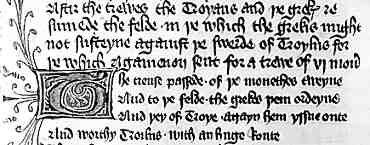 Aftir the trewes the Troyans and þe grekes re
sumede the felde · in þe which the grekis might
not susteyne against þe swerde of Troylus for
þe which Agamenon sent for a trewe of vi
The treuse passede · of þe monethes tweyne
And to þe felde · the grekes hem ordeyne
And þey of Troye · agayn hem yssue oute
And worthy Troilus · with an huge route